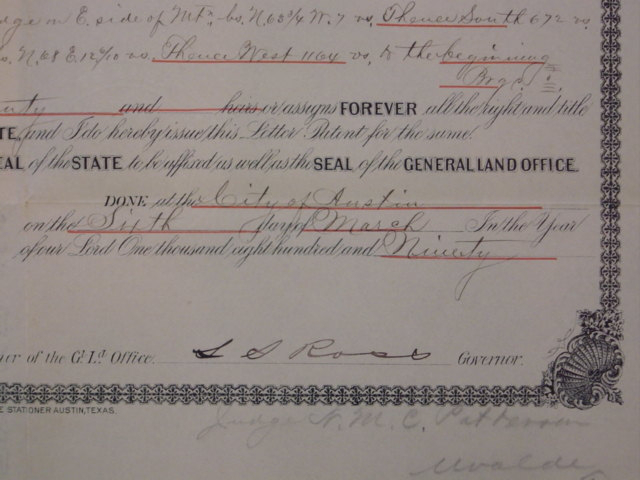 on E. side of Mtn bs. N.63 3/4 W. 7 vs. Thence South 672 vs.
N.68 E. 12 4/10 vs. Thence West 1164 vs, to the beginning
and heirs or assigns FOREVER all the right and title
and I do hereby issue this Letter Patent for the same.
SEAL of the STATE to be affixed as well as the SEAL of the GENERAL LAND OFFICE.
DONE at the City of Austin
on the Sixth day of March In the Year
of our Lord One thousand, eight hundred and Ninety
of the G'l. L'd. Office. L S Ross Governor.
STATIONER AUSTIN, TEXAS.
Judge N. M. C. Patterson
Uvalde